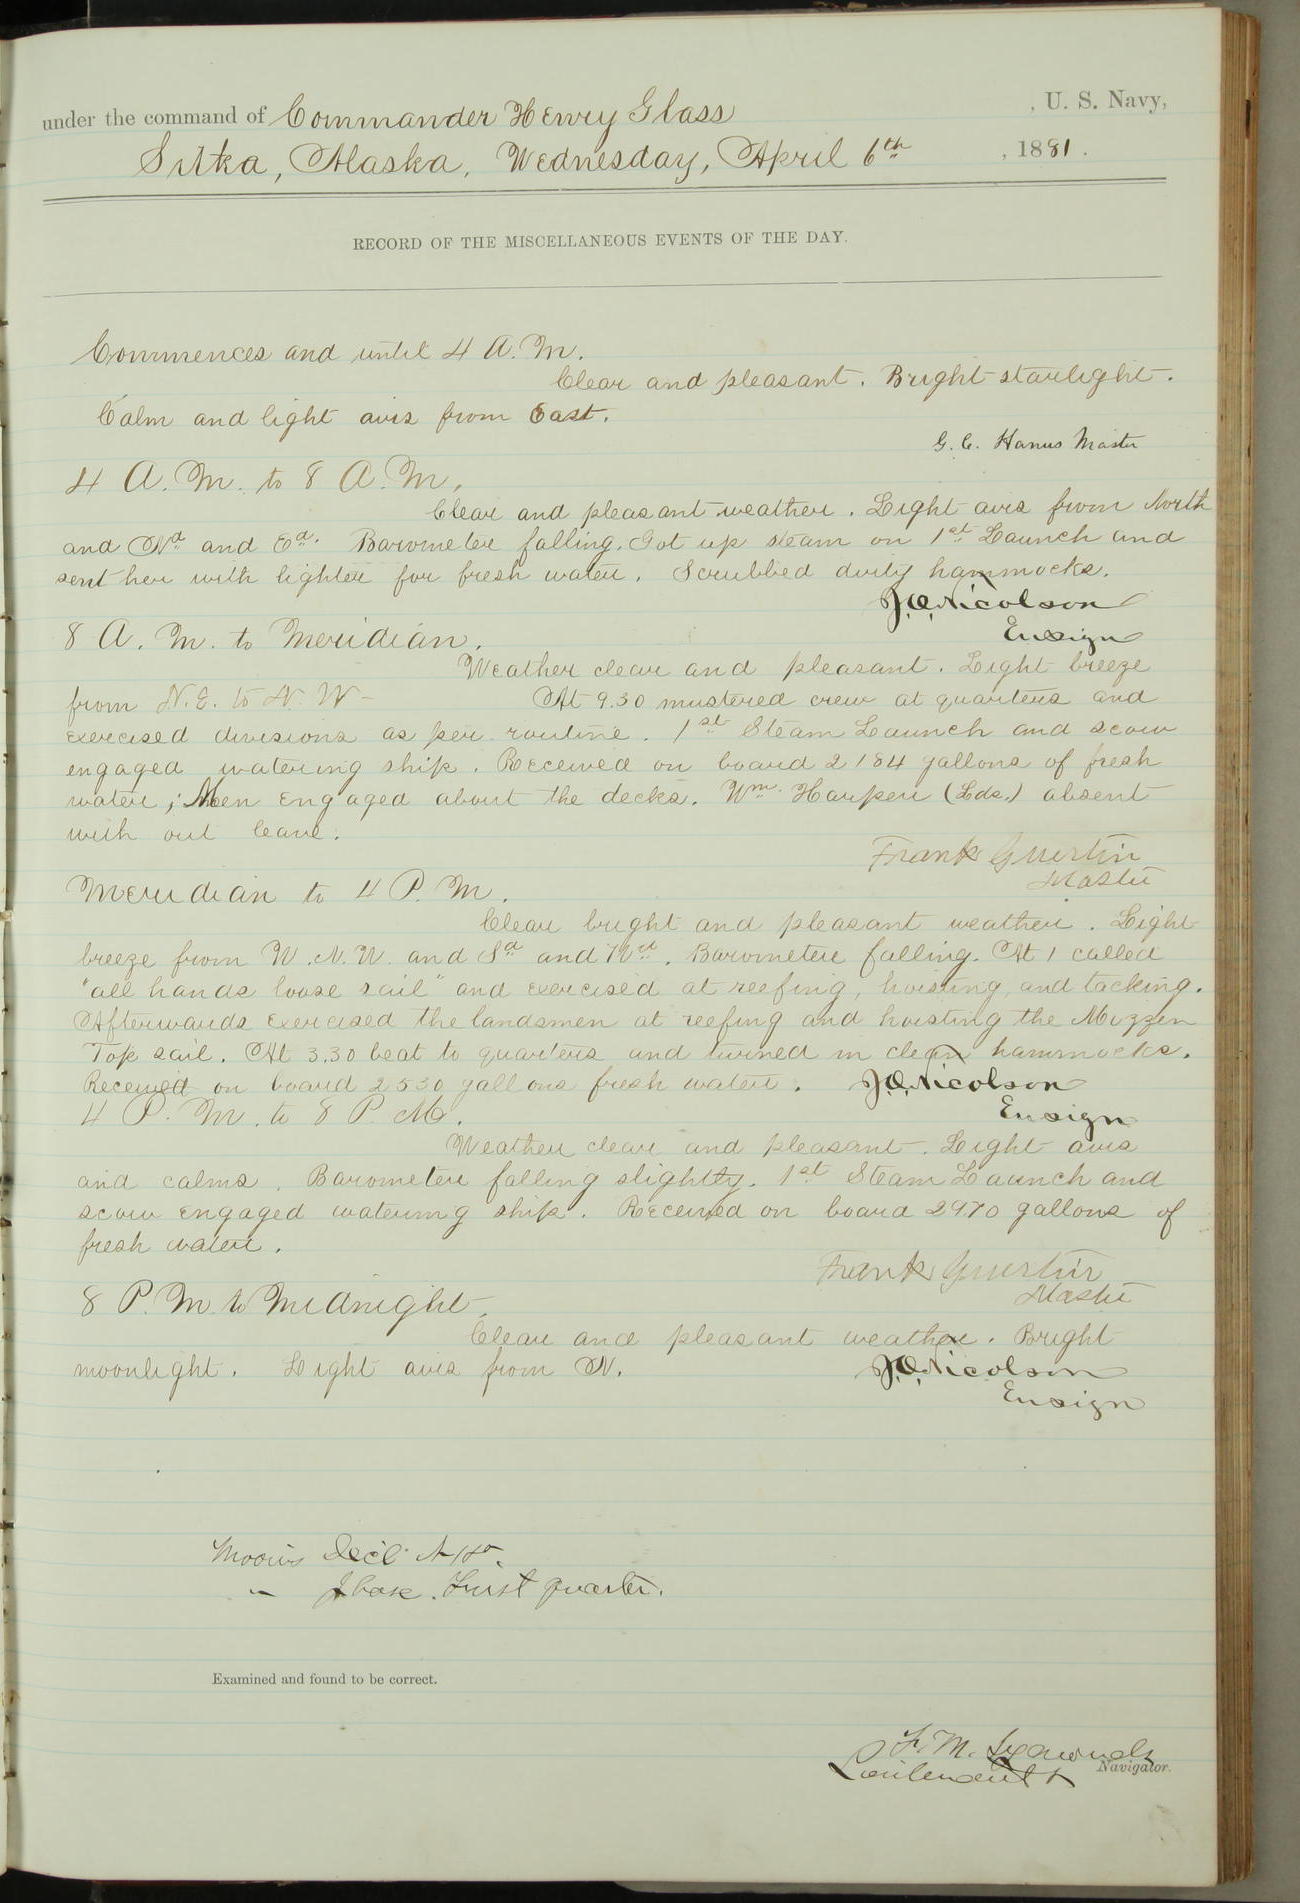 under the command of Commander Henry Glass , U. S. Navy,
Sitka, Alaska, Wednesday, April 6th , 1881.
RECORD OF THE MISCELLANEOUS EVENTS OF THE DAY.
Commences and until 4 A. M.
Clear and pleasant. Bright starlight.
Calm and light airs from East.
G. C. Hanus Master
4 A. M. to 8 A. M.
Clear and pleasant weather. Light airs from North
and Nd and Ed. Barometer falling. Got up steam on 1st Launch and
sent her with lighter for fresh water. Scrubbed dirty hammocks.
J.O.Nicolson
Ensign
8 A. M. to Meridian.
Weather clear and pleasant. Light breeze
from N.E. to N. W- At 9.30 mustered crew at quarters and
exercised divisions as per routine. 1st Steam Launch and scow
engaged watering ship. Received on board 2184 gallons of fresh
water; Men engaged about the decks. Wm. Harper (Lds.) absent
with out leave.
Frank Guertin
Master
Meridian to 4 P. M.
Clear bright and pleasant weather. Light
breeze from W. N. W. and Sd and Wd. Barometer falling. At 1 called
"all hands loose sail" and exercised at reefing, hoisting, and tacking.
Afterwards exercised the landsmen at reefing and hoisting the Mizzen
Top sail. At 3.30 beat to quarters and turned in clean hammocks.
Received on board 2530 gallons fresh water. J.O.Nicolson
4 P. M. to 8 P. M. Ensign
Weather clear and pleasant. Light airs
and calms. Barometer falling slightly. 1st Steam Launch and
scow engaged watering ship. Received on board 2970 gallons of
fresh water.
Frank Guertin
Master
8 P. M. to Midnight.
Clear and pleasant weather. Bright
moonlight. Light airs from N. J.O.Nicolson
Ensign
Moon's Decl. N
" Phase. First Quarter.
Examined and found to be correct.
F. M. Symonds
Lieutenant Navigator.